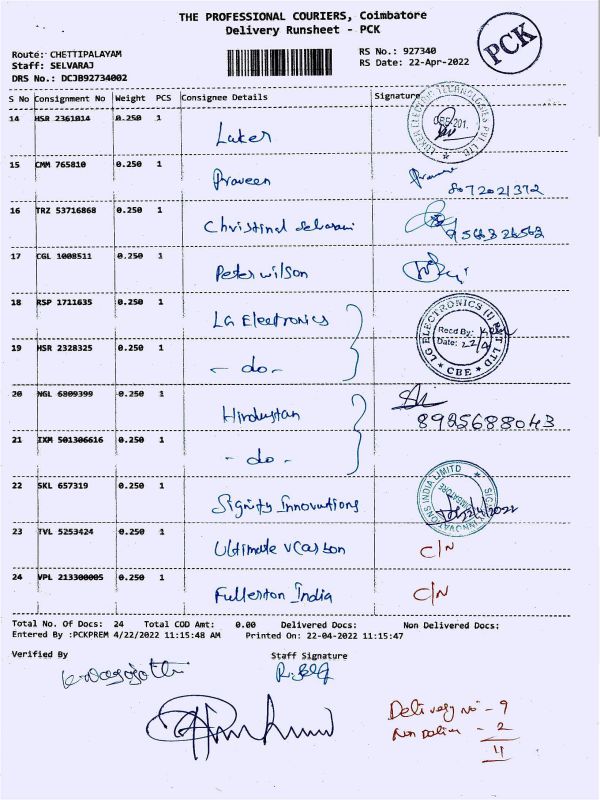 THE PROFESSIONAL COURIERS, Coimbatore
Delivery Runsheet - PCK
PCK
Route: CHETTIPALAYAM
Staff: SELVARAJ
DRS No.: DCJB92734002
RS No.: 927340
RS Date: 22-Apr-2022
S No Consignment No Weight PCS Consignee Details Signature
14 HSR 2361014 0.250 1 Luker
15 CMM 765810 0.250 1 Praveen
8072021372
16 TRZ 53716868 0.250 1 Christinal
9566326562
17 CGL 1008511 0.250 1 Peter wilson
18 RSP 1711635 0.250 1 LG Electronics
LG ELECTRONICS (I) PVT LTD
Recd By:
Date: 22/4
CBE
19 HSR 2328325 0.250 1 - do -
20 NGL 6809399 0.250 1 Hindustan
8985688043
21 IXM 501306616 0.250 1 - do -
22 SKL 657319 0.250 1 Signity Innovations
22/4/2022
23 TVL 5253424 0.250 1 Ultimate vCarbon C/N
24 VPL 213300005 0.250 1 Fullerton India C/N
Total No. Of Docs: 24 Total COD Amt: 0.00 Delivered Docs: Non Delivered Docs:
Entered By :PCKPREM 4/22/2022 11:15:48 AM Printed On: 22-04-2022 11:15:47
Verified By Staff Signature
Delivery no - 9
Non - 2
11